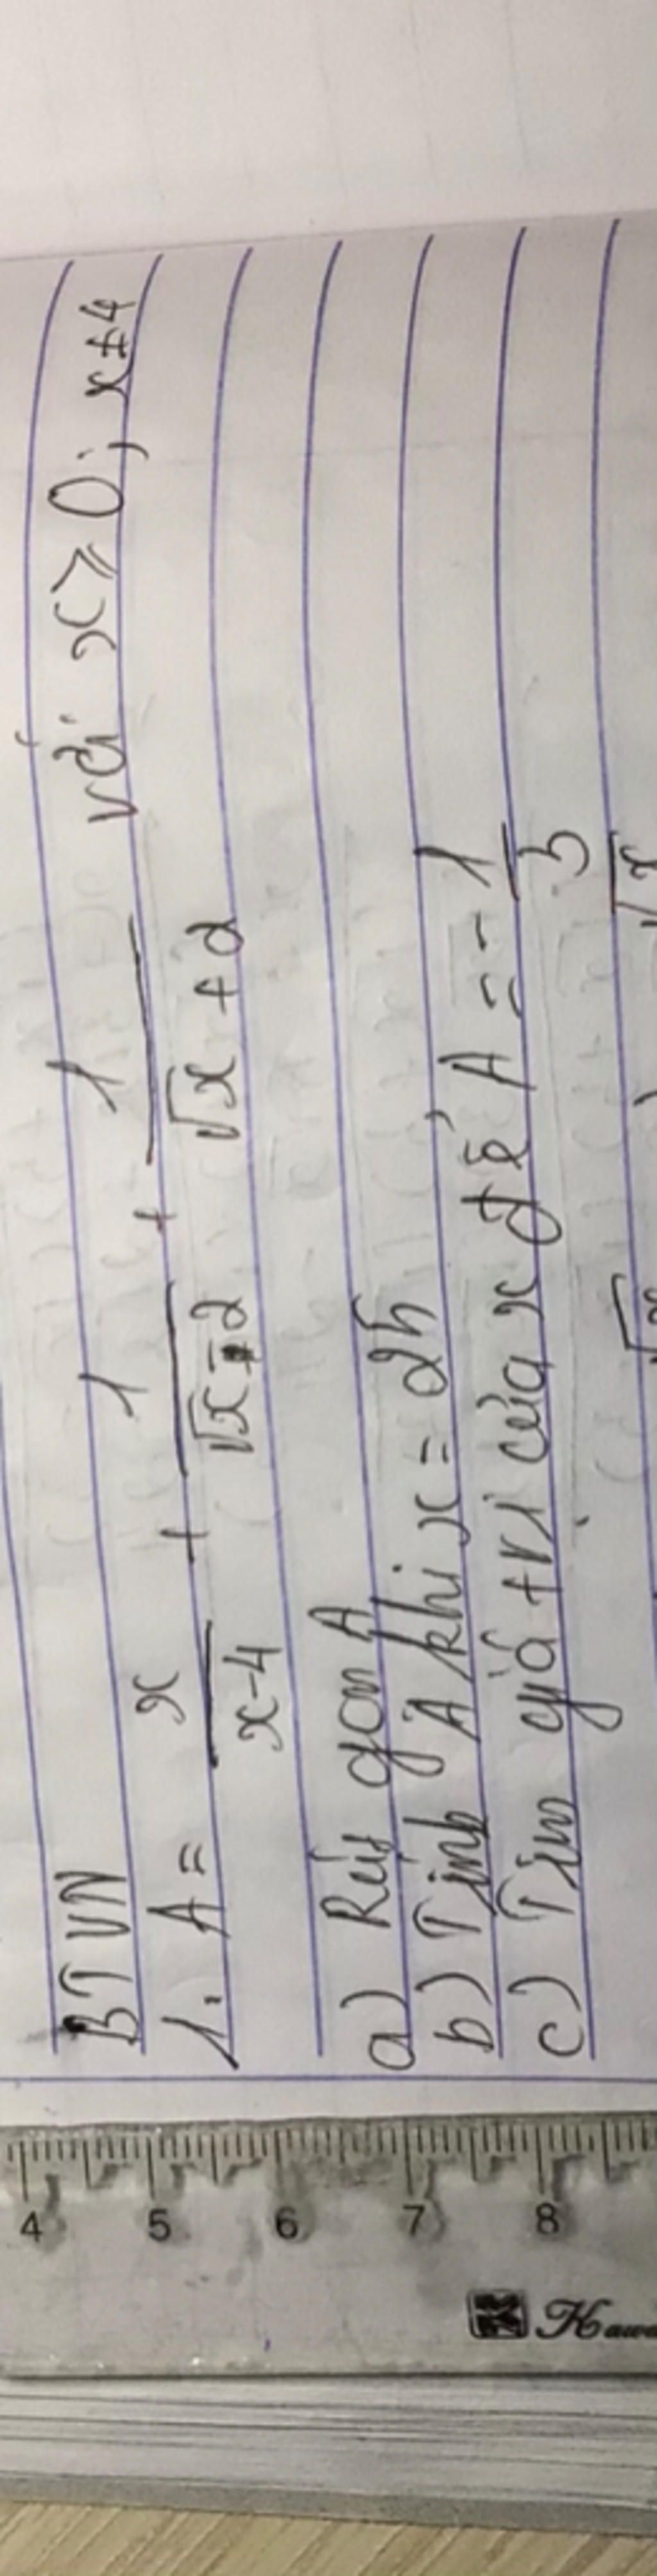 BTVN
1. A = x/(x-4) + 1/(√x-2) + 1/(√x+2) với x ≥ 0; x ≠ 4
a) Rút gọn A
b) Tính A khi x = 25
c) Tìm giá trị của x để A = -1/3
4 5 6 7 8